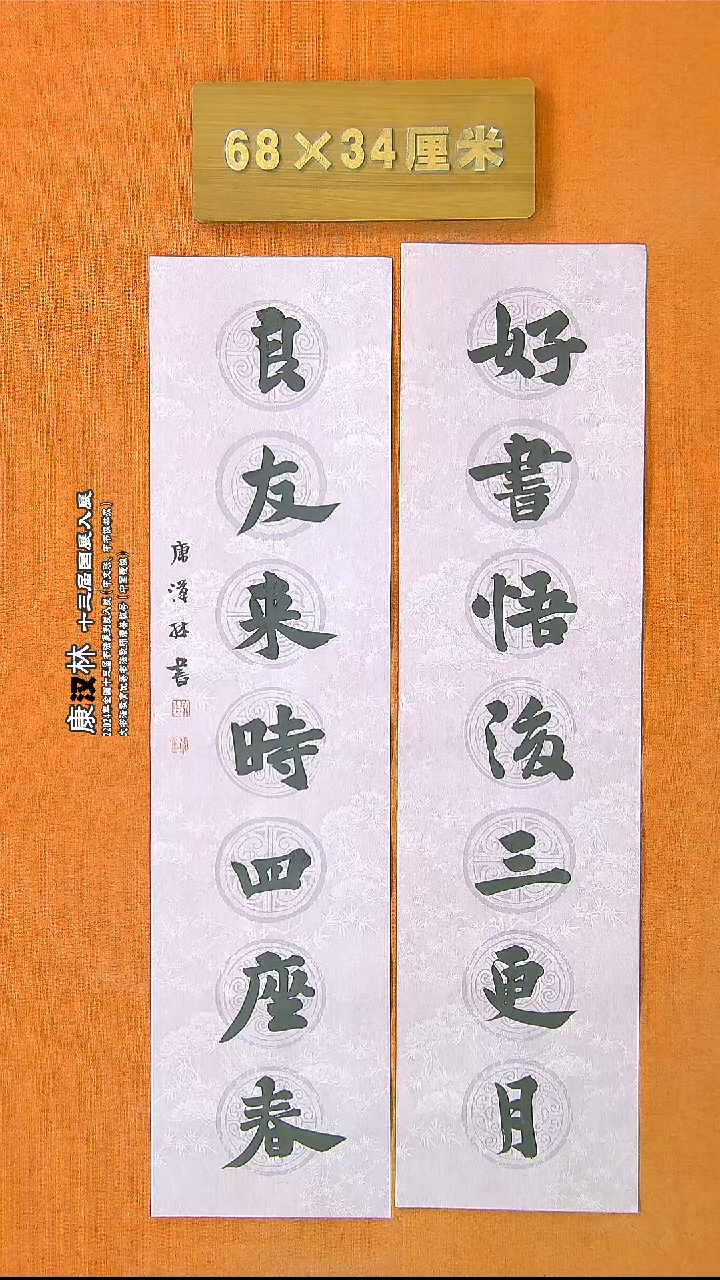 68×34厘米
好書悟後三更月
良友来時四座春
康漢林書
康汉林 十三届国展入展